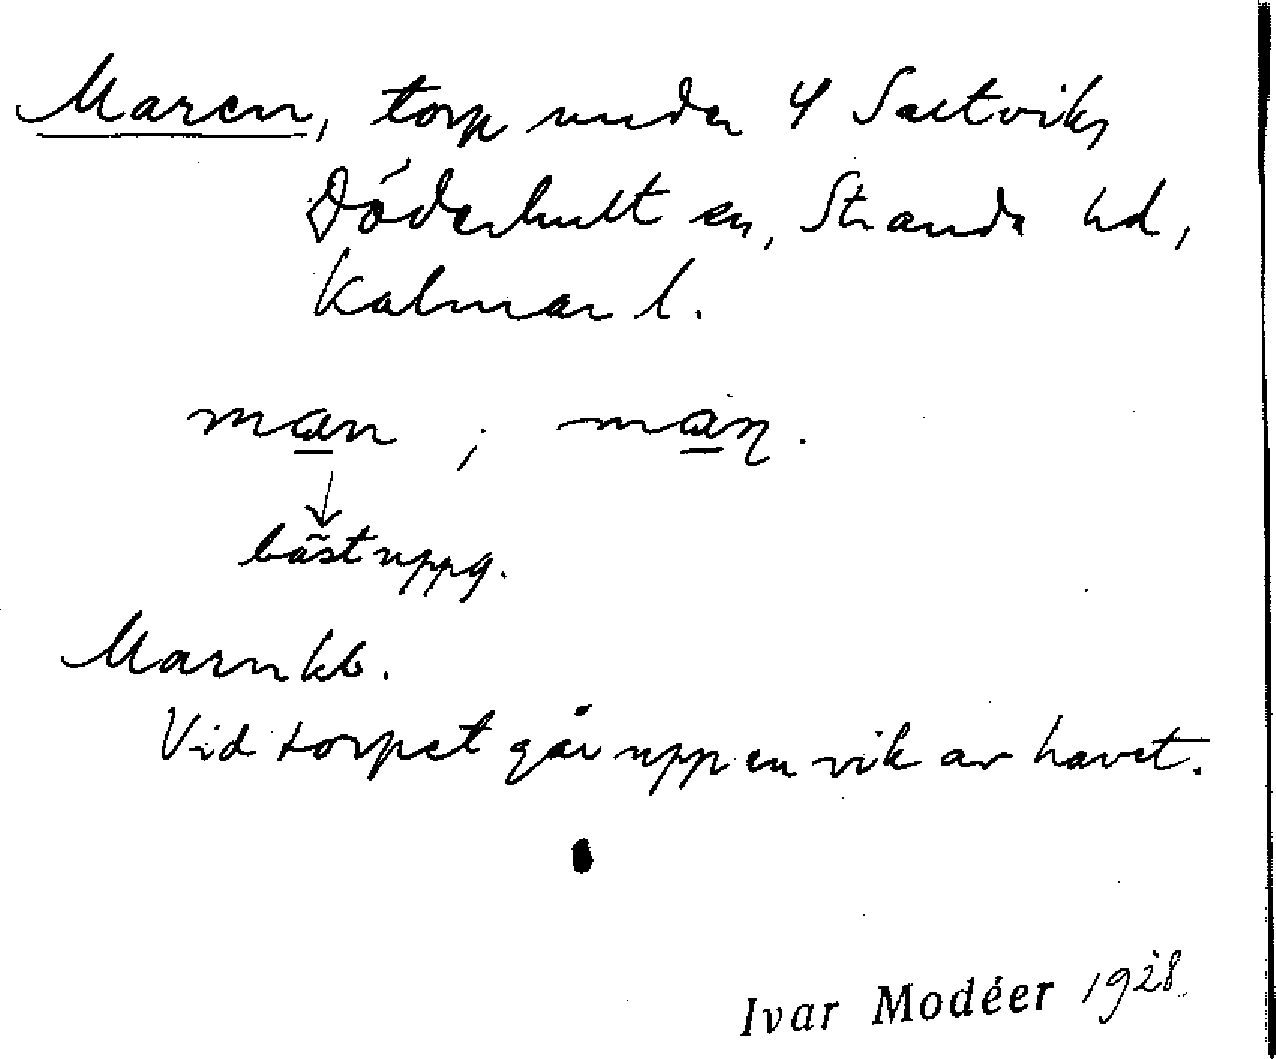 Maren, torp under 4 Saltvik,
Döderhult sn, Stranda hd,
Kalmar l.
man ; maṇ.
bäst uppg.
Marn kb.
Vid torpet går upp en vik av havet.
Ivar Modéer 1928